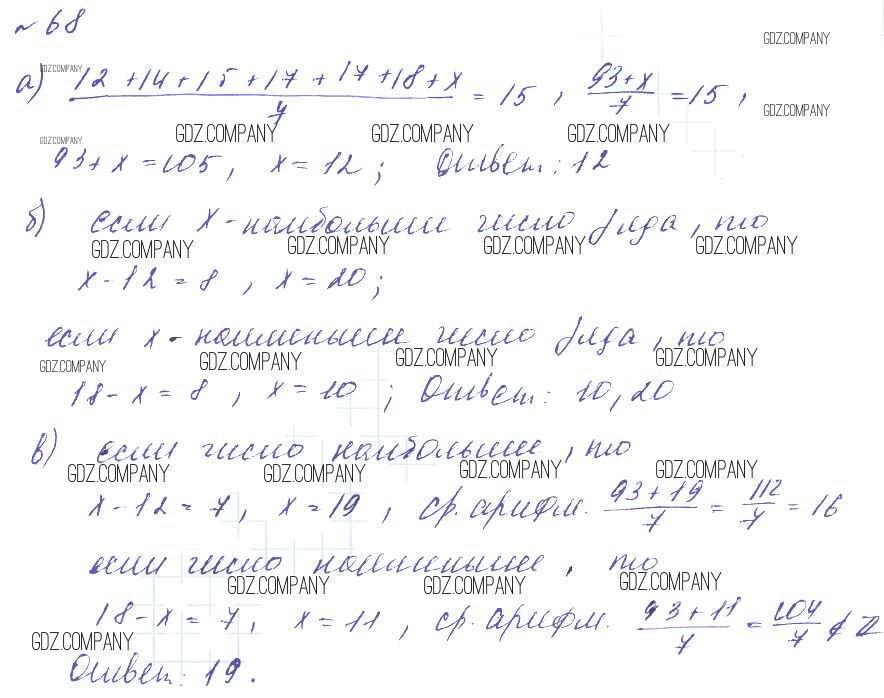 № 68
GDZ.COMPANY
а) (12 + 14 + 15 + 17 + 17 + 18 + x)/7 = 15 , (93+x)/7 = 15 ,
GDZ.COMPANY GDZ.COMPANY
GDZ.COMPANY GDZ.COMPANY GDZ.COMPANY GDZ.COMPANY
93 + x = 105 , x = 12 ; Ответ : 12
б) если x - наибольшее число ряда , то
GDZ.COMPANY GDZ.COMPANY GDZ.COMPANY GDZ.COMPANY
x - 12 = 8 , x = 20 ;
если x - наименьшее число ряда , то
GDZ.COMPANY GDZ.COMPANY GDZ.COMPANY GDZ.COMPANY
18 - x = 8 , x = 10 ; Ответ : 10 , 20
в) если число наибольшее , то
GDZ.COMPANY GDZ.COMPANY GDZ.COMPANY GDZ.COMPANY
x - 12 = 7 , x = 19 , ср. арифм. (93 + 19)/7 = 112/7 = 16
если число наименьшее , то
GDZ.COMPANY GDZ.COMPANY GDZ.COMPANY
18 - x = 7 , x = 11 , ср. арифм. (93 + 11)/7 = 104/7 ∉ Z
GDZ.COMPANY
Ответ : 19 .